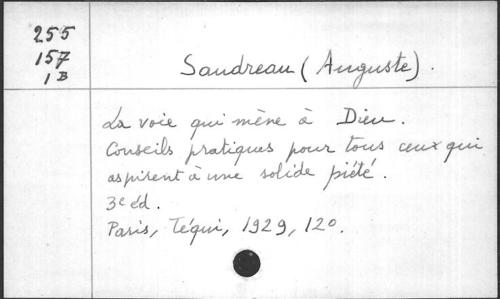 255
157
1 B
Saudreau (Auguste).
La voie qui mène à Dieu.
Conseils pratiques pour tous ceux qui
aspirent à une solide piété.
3e éd.
Paris, Téqui, 1929, 12o.